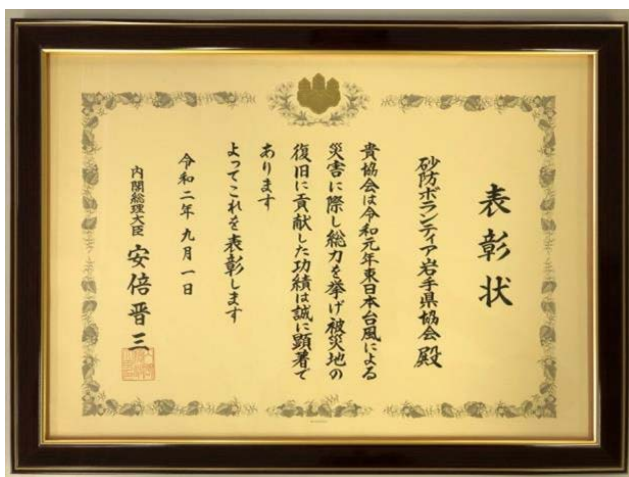 表彰状
砂防ボランティア岩手県協会殿
貴協会は令和元年東日本台風による
災害に際し総力を挙げ被災地の
復旧に貢献した功績は誠に顕著で
あります
よってこれを表彰します
令和二年九月一日
内閣総理大臣 安倍晋三